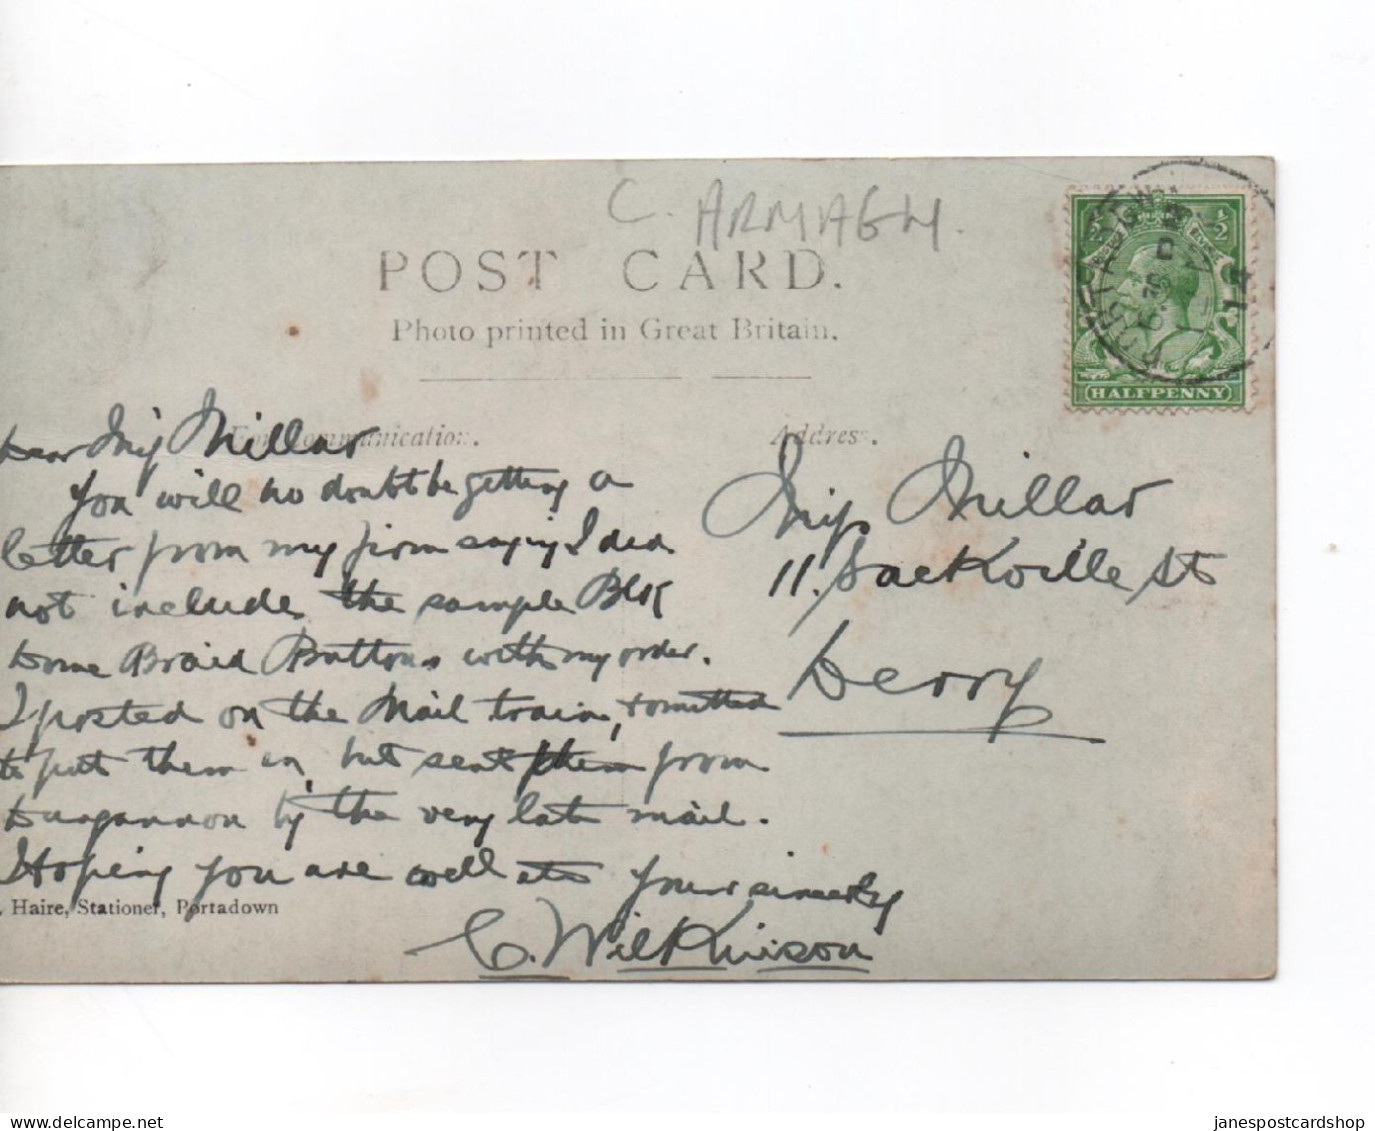 C. ARMAGH.
POST CARD.
Photo printed in Great Britain.
½ ½
HALFPENNY
14
For Communication.
Address.
Dear Miss Millar
You will no doubt be getting a
letter from my firm saying I did
not include the sample Blk
Dome Braid Buttons with my order.
I posted on the Mail train, & omitted
to put them in but sent them from
Dungannon by the very late mail.
Hoping you are well etc Yours sincerely
C. Wilkinson
Haire, Stationer, Portadown
Miss Millar
11. Sackville St
Derry
janespostcardshop